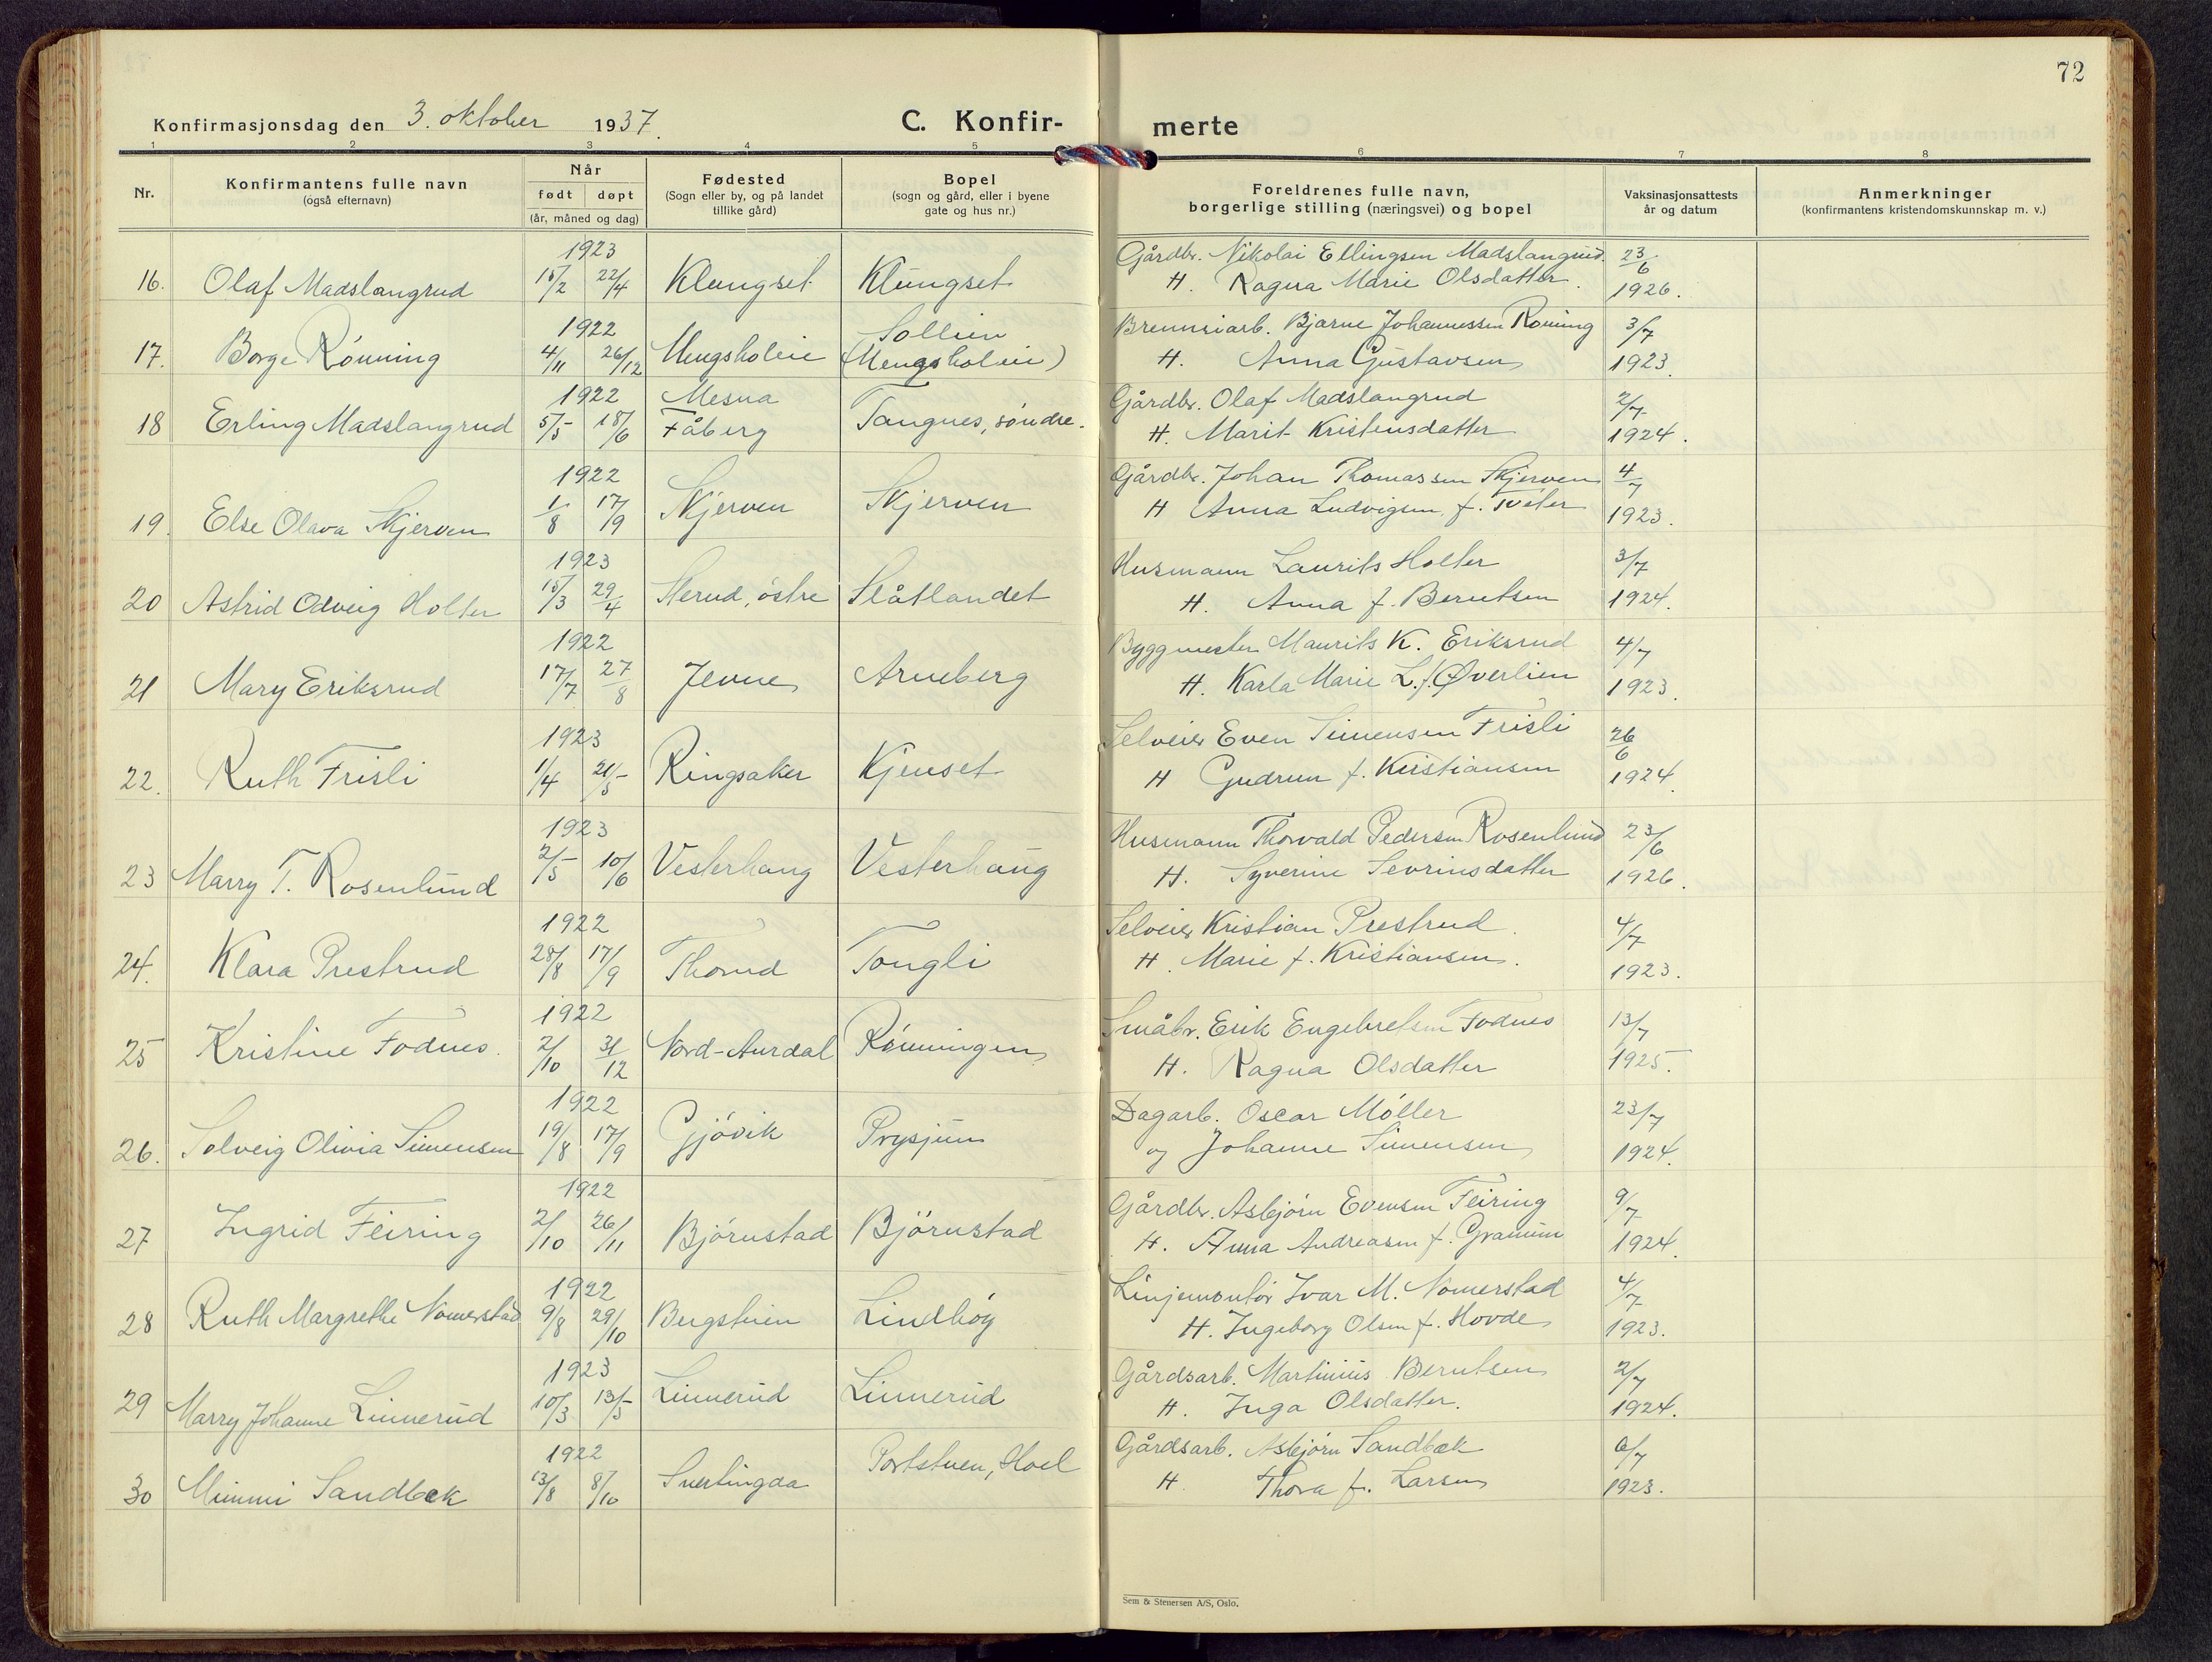 72
Konfirmasjonsdag den 3. oktober 1937.
C. Konfir-merte
1 2 3 4 5 6 7 8
Nr. Konfirmantens fulle navn (også efternavn) Når født døpt (år, måned og dag) Fødested (Sogn eller by, og på landet tillike gård) Bopel (sogn og gård, eller i byene gate og hus nr.) Foreldrenes fulle navn, borgerlige stilling (næringsvei) og bopel Vaksinasjonsattests år og datum Anmerkninger (konfirmantens kristendomskunnskap m. v.)
1923 Gårdbr. Nikolai Ellingsen Madslangrud. 23/6
16. Olaf Madslangrud 15/2 22/4 Klungset Klungset H. Ragna Marie Olsdatter. 1926.
1922 Sollien Brenneriarb. Bjarne Johannessen Rönning 3/7
17. Borge Rönning 4/11 26/12 Mengsholeie (Mengsholeie) H. Anna Gustavsen 1923.
1922 Mesna Gårdbr. Olaf Madslangrud 2/7
18 Erling Madslangrud 5/5 18/6 Fåberg Tangnes, söndre. H. Marit Kristensdatter 1924.
1922 Gårdbr. Johan Thomassen Skjerven 4/7
19. Else Olava Skjerven 1/8 17/9 Skjerven Skjerven H Anna Ludvigsen f. Tveter 1923.
1923 Husmann Laurits Holter 3/7
20 Astrid Odveig Holter 15/3 29/4 Sterud, östre Slåtlandet H. Anna f. Berntsen 1924.
1922 Byggmester Maurits K. Eriksrud 4/7
21 Mary Eriksrud 17/7 27/8 Jevne Arneberg H. Karla Marie L. f. Øverlien 1923.
1923 Selveier Even Simensen Frisli 26/6
22. Ruth Frisli 1/4 21/5 Ringsaker Kjenset H Gudrun f. Kristiansen 1924.
1923 Husmann Thorvald Pedersen Rosenlund 23/6
23 Marry T. Rosenlund 2/5 10/6 Vesterhaug Vesterhaug H. Syverine Sevrinsdatter 1926.
1922 Selveier Kristian Prestrud. 4/7
24. Klara Prestrud 28/8 17/9 Thorud Tongli H. Marie f. Kristiansen. 1923.
1922 Småbr. Erik Engebretsen Fodnes 13/7
25 Kristine Fodnes. 2/10 31/12 Nord-Aurdal Rönningen H. Ragna Olsdatter 1925.
1922 Dagarb. Oscar Möller 23/7
26. Solveig Olivia Simensen 19/8 17/9 Gjövik Prysjun og Johanne Simensen 1924.
1922 Gårdbr. Asbjörn Evensen Feiring 9/7
27 Ingrid Feiring 2/10 26/11 Björnstad Björnstad H. Anna Andreasen f. Granum 1924.
1922 Linjemontör Ivar M. Nomerstad 4/7
28 Ruth Margrethe Nomerstad 9/8 29/10 Bergsteien Lindhög H. Ingeborg Olsen f. Hovde 1923.
1923 Gårdsarb. Martinius Berntsen 2/7
29 Marry Johanne Linnerud 10/3 13/5 Linnerud Linnerud H. Inga Olsdatter. 1924.
1922 Gårdsarb. Asbjörn Sandbæk 6/7
30 Mimmi Sandbæk 13/8 8/10 Svertingda Portstuen, Hoel H Thora f. Larsen 1923.
Sem & Stenersen A/S, Oslo.